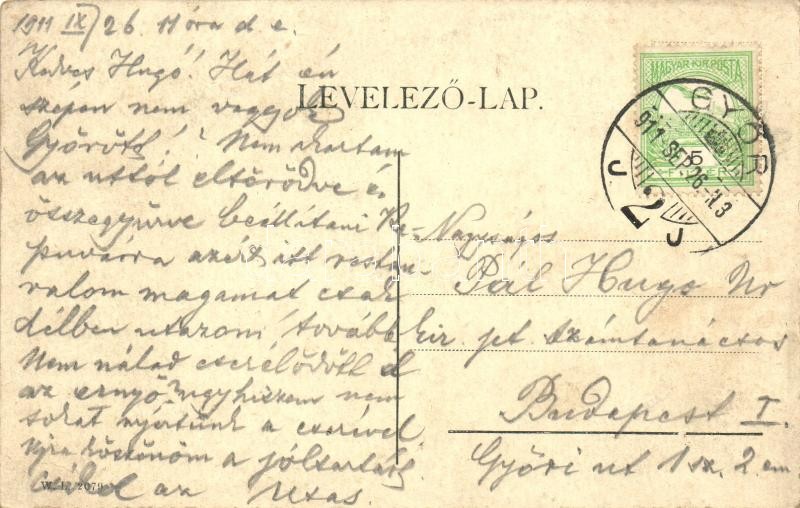 1911 IX/26 11 óra d. e.
Kedves Hugó! Hát én
szépen nem vagyok
Győrött! Nem akartam
az uttól eltörődve é
összegyürve beállitani Ka-
puvárra azért itt restau-
válom magamat csak
délben utazom tovább
Nem nálad cserélődött el
az ernyő? ugyhiszem nem
sokat nyertünk a cserével
Ujra köszönöm a jóltartást
az Utas.
LEVELEZŐ-LAP.
MAGYAR KIR. POSTA
5
FILLÉR
GYŐR
911 SEP. 26
J 2 J
Nagyságos
Pál Hugo Ur
kir. jet számtanácsos
Budapest I.
Győri ut 1 sz. 2 em
W. L. 2079